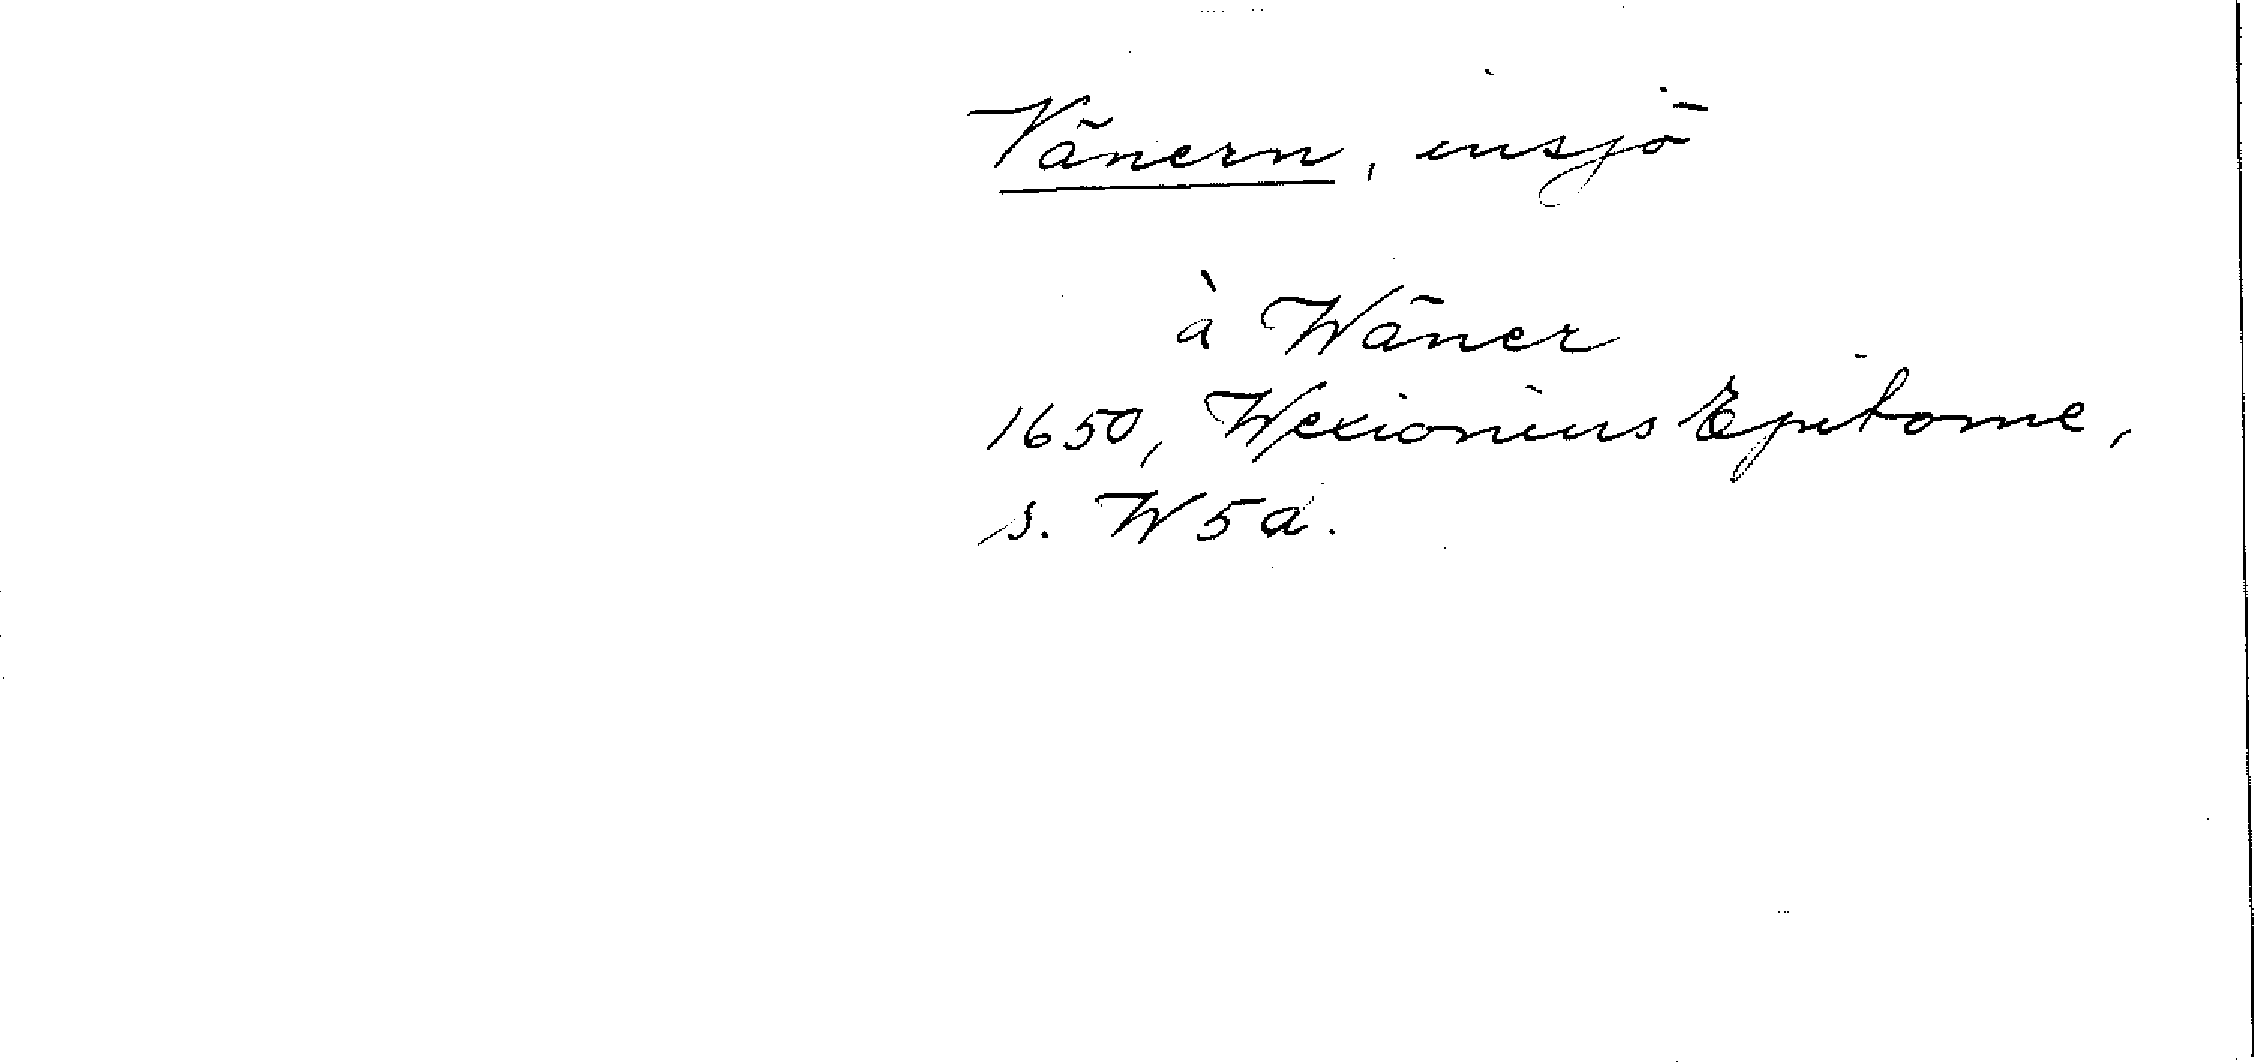 Vänern, insjö
à Wäner
1650, Wexionius Epitome,
s. W5a.